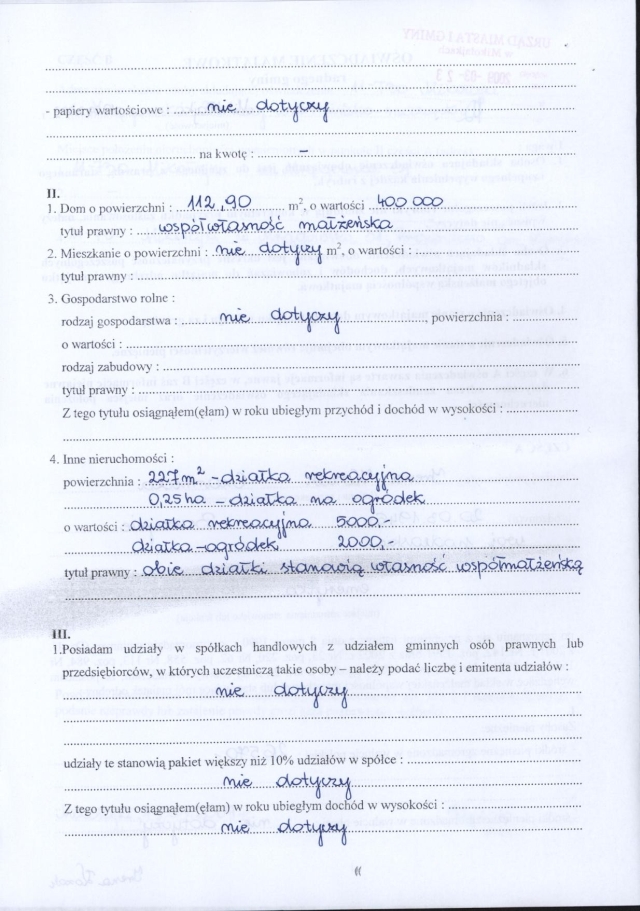 - papiery wartościowe : nie dotyczy
na kwotę : –
II.
1. Dom o powierzchni : 112,90 m², o wartości 400 000
tytuł prawny : współwłasność małżeńska
2. Mieszkanie o powierzchni : nie dotyczy m², o wartości :
tytuł prawny :
3. Gospodarstwo rolne :
rodzaj gospodarstwa : nie dotyczy , powierzchnia :
o wartości :
rodzaj zabudowy :
tytuł prawny :
Z tego tytułu osiągnąłem(ęłam) w roku ubiegłym przychód i dochód w wysokości :
4. Inne nieruchomości :
powierzchnia : 227 m² - działka rekreacyjna
0,25 ha – działka na ogródek
o wartości : działka rekreacyjna 5000,-
działka -ogródek 2000,-
tytuł prawny : obie działki stanowią własność współmałżeńską
III.
1.Posiadam udziały w spółkach handlowych z udziałem gminnych osób prawnych lub
przedsiębiorców, w których uczestniczą takie osoby – należy podać liczbę i emitenta udziałów :
nie dotyczy
udziały te stanowią pakiet większy niż 10% udziałów w spółce :
nie dotyczy
Z tego tytułu osiągnąłem(ęłam) w roku ubiegłym dochód w wysokości :
nie dotyczy